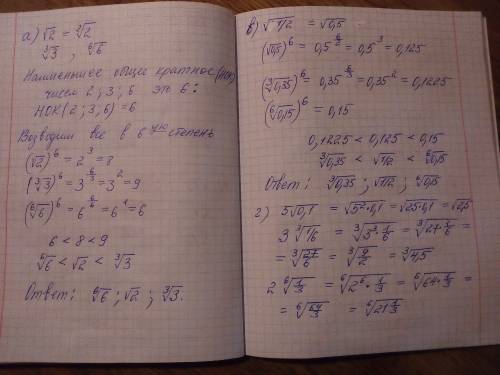 а) √2 = ²√2
³√3 , ⁶√6
Наименьшее общее кратное (НОК)
чисел 2; 3; 6 это 6:
НОК(2; 3; 6) = 6
Возводим все в 6 ую степень
(√2)⁶ = 2³ = 8
(³√3)⁶ = 3^(6/3) = 3² = 9
(⁶√6)⁶ = 6^(6/6) = 6¹ = 6
6 < 8 < 9
⁶√6 < √2 < ³√3
Ответ: ⁶√6 ; √2 ; ³√3.
в) √1/2 = √0,5
(√0,5)⁶ = 0,5^(6/2) = 0,5³ = 0,125
(³√0,35)⁶ = 0,35^(6/3) = 0,35² = 0,1225
(⁶√0,15)⁶ = 0,15
0,1225 < 0,125 < 0,15
³√0,35 < √1/2 < ⁶√0,15
Ответ: ³√0,35 ; √1/2 ; ⁶√0,15
г) 5√0,1 = √5²·0,1 = √25·0,1 = √2,5
3 ³√1/6 = ³√3³·1/6 = ³√27·1/6 =
= ³√27/6 = ³√9/2 = ³√4,5
2 ⁶√1/3 = ⁶√2⁶·1/3 = ⁶√64·1/3 =
= ⁶√64/3 = ⁶√21 1/3